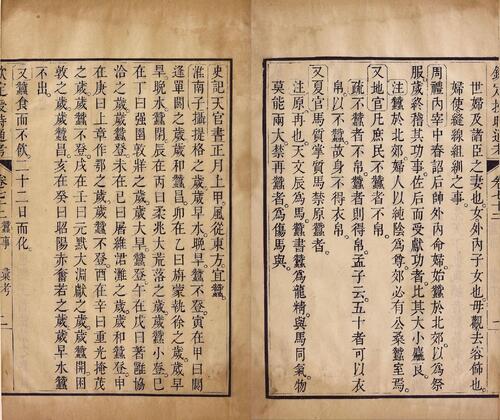 世婦及諸臣之妻也女外內子女也毋觀去容飾也。
婦使縫線組紃之事。
周禮內宰中春詔后帥外內命婦始蠶於北郊以為祭
服。歲終稽其功事。佐后而受獻功者。比其大小麤良。
注蠶於北郊婦人以純陰為尊郊必有公桑蠶室焉。
又地官凡庶民不蠶者不帛。
疏不蠶者不帛。蠶者則得帛。孟子云五十者可以衣
帛。以不蠶。故身不得衣帛。
又夏官馬質掌質馬禁原蠶者。
注原再也。天文辰為馬。蠶書蠶為龍精。與馬同氣。物
莫能兩大。禁再蠶者。為傷馬與。
史記天官書正月上甲風從東方宜蠶。
淮南子攝提格之歲歲早水晚旱。蠶不登。寅在甲曰閼
逢單閼之歲歲和。蠶昌。卯在乙曰旃蒙執徐之歲歲早
旱晚水。蠶閉。辰在丙曰柔兆大荒落之歲歲蠶小登。巳
在丁曰强圉敦牂之歲歲大旱。蠶登。午在戊曰著雝協
洽之歲歲蠶登。未在己曰屠維涒灘之歲歲和。蠶登。申
在庚曰上章作鄂之歲歲蠶不登。酉在辛曰重光掩茂
之歲歲蠶不登。戌在壬曰元黓大淵獻之歲蠶開。困
敦之歲歲蠶昌。亥在癸曰昭陽赤奮若之歲歲早水。蠶
不出。
又蠶食而不飲。二十二日而化。
欽定授時通考 卷七十二 蠶事 彙考 二